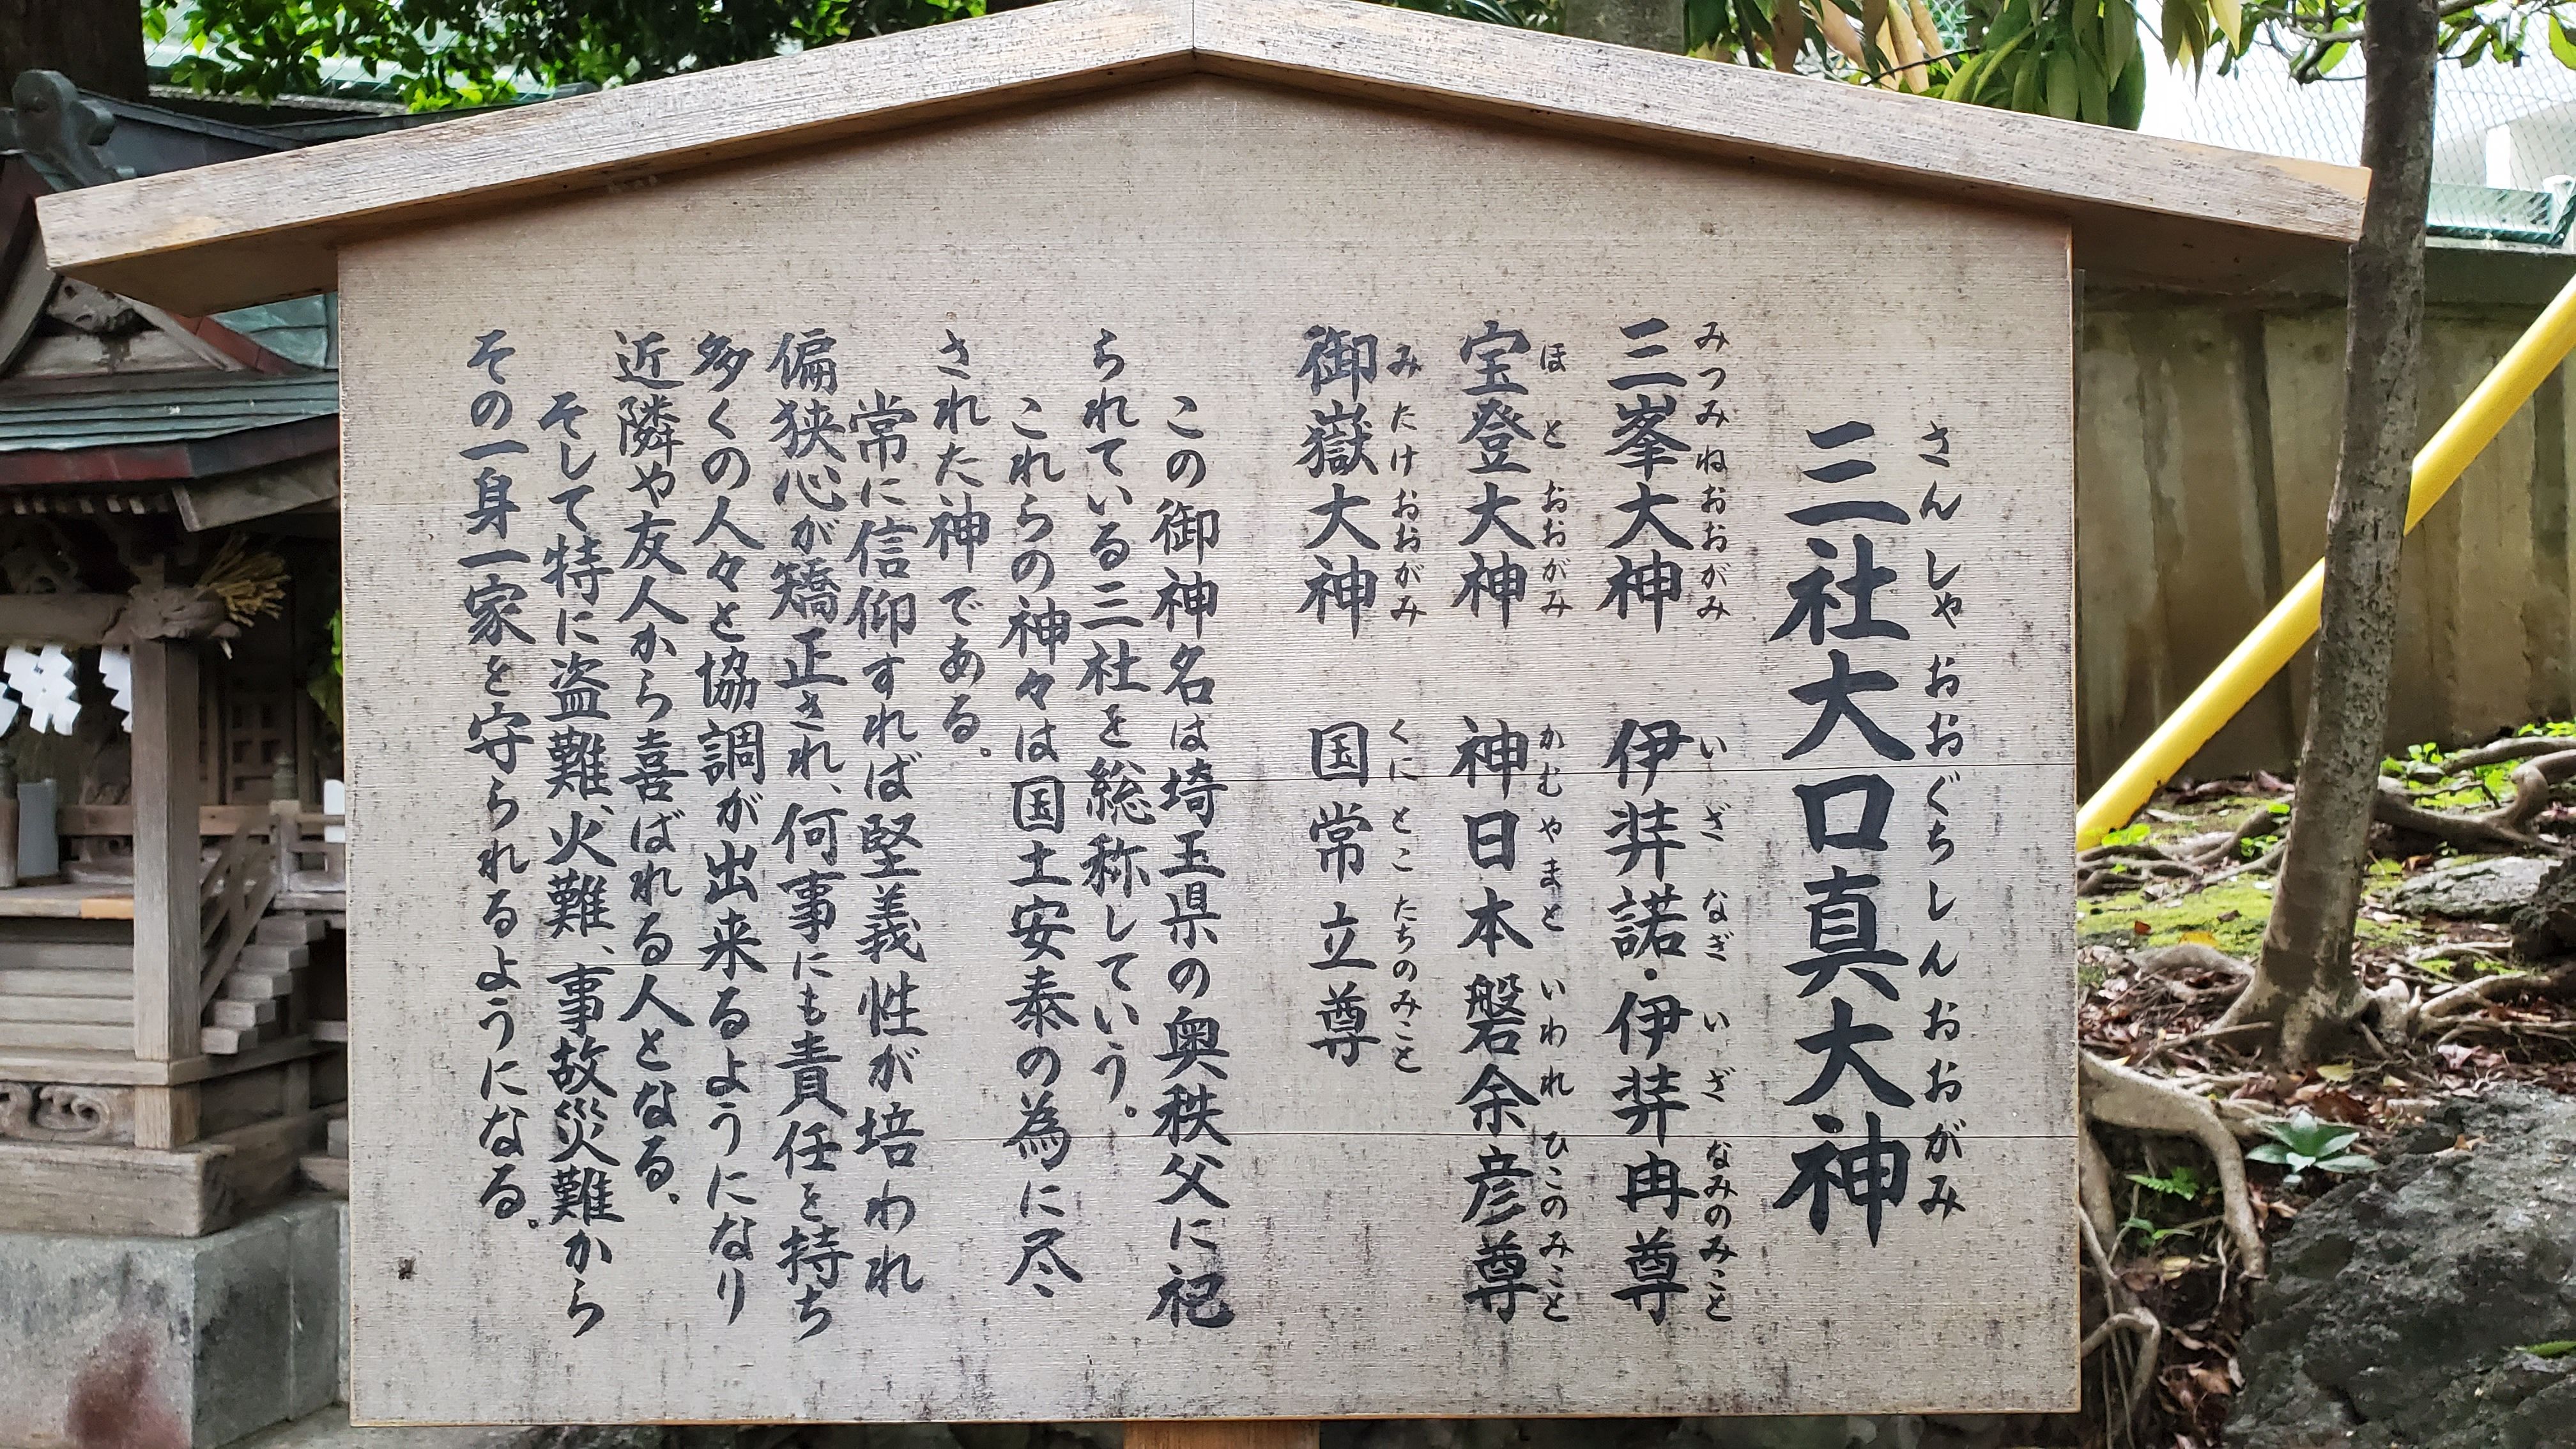 三社大口真大神
さんしゃおおぐちしんおおがみ
三峯大神　伊弉諾・伊弉冉尊
みつみねおおがみ　いざなぎ　いざなみのみこと
宝登大神　神日本磐余彦尊
ほとおおがみ　かむやまといわれひこのみこと
御嶽大神　国常立尊
みたけおおがみ　くにとこたちのみこと
この御神名は埼玉県の奥秩父に祀
られている三社を総称していう。
これらの神々は国土安泰の為に尽
された神である。
常に信仰すれば堅義性が培われ
偏狭心が矯正され、何事にも責任を持ち
多くの人々と協調が出来るようになり
近隣や友人から喜ばれる人となる。
そして特に盗難、火難、事故災難から
その一身一家を守られるようになる。